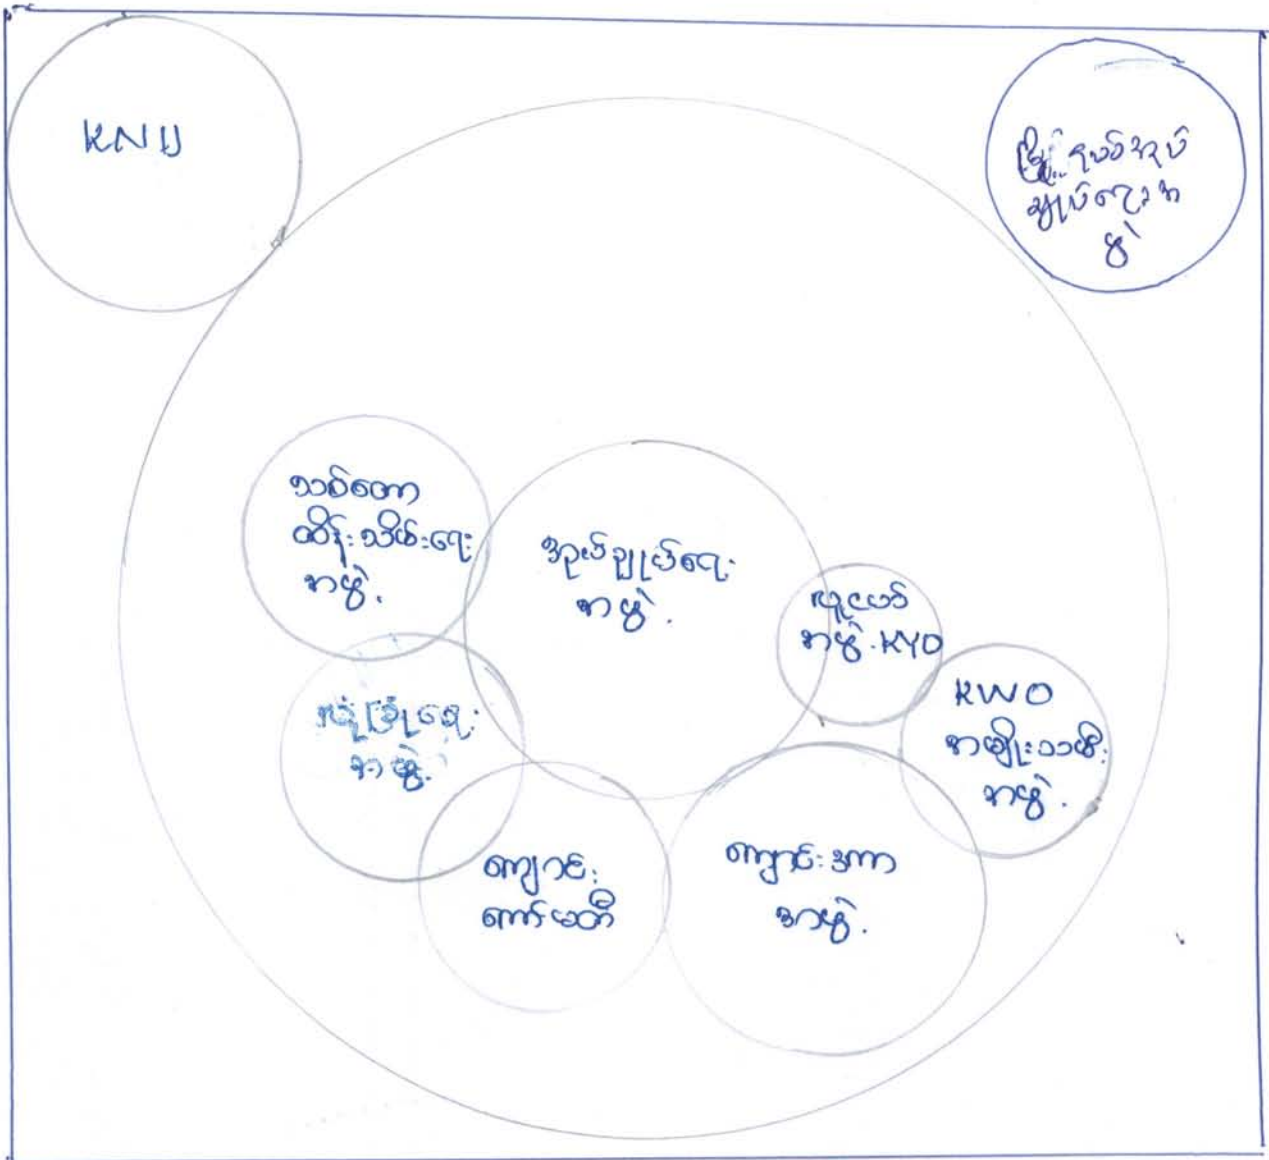 KNU
မြို့နယ်အုပ်
ချုပ်ရေးအ
ဖွဲ့
သစ်တော
ထိန်းသိမ်းရေး
အဖွဲ့.
အုပ်ချုပ်ရေး
အဖွဲ့.
လူငယ်
အဖွဲ့.KYO
KWO
အမျိုးသမီး
အဖွဲ့.
လုံခြုံရေး
အဖွဲ့.
ကျောင်း
ကော်မတီ
ကျောင်းအကာ
အဖွဲ့.